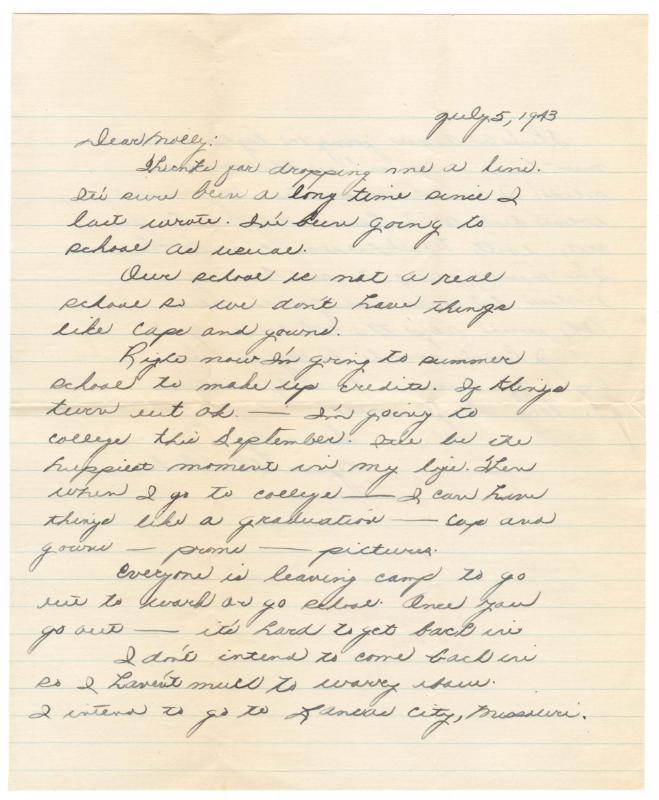 July 5, 1943
Dear Molly:
Thanks for dropping me a line.
It's sure been a long time since I
last wrote. I've been going to
school as usual.
Our school is not a real
school so we don't have things
like caps and gowns.
Right now I'm going to summer
school to make up credits. If things
turn out ok. — I'm going to
college this September. It'll be the
happiest moment in my life. Then
when I go to college — I can have
things like a graduation — cap and
gowns — proms — pictures.
Everyone is leaving camp to go
out to work or go school. Once you
go out — it's hard to get back in
I don't intend to come back in
so I haven't much to worry about.
I intend to go to Kansas City, Missouri.